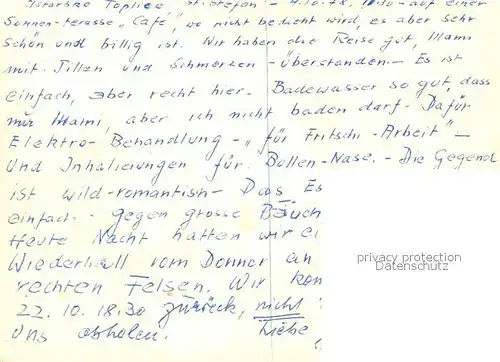 Istarske Toplice "St. Stefan" – 4.10.78, 11.30 – auf einer
Sonnen-terasse "Café", wo nicht bedient wird, es aber sehr
schön und billig ist. Wir haben die Reise gut, Mami
mit Pillen und Schmerzen – überstanden. – Es ist
einfach, aber recht hier. Badewasser so gut, dass
nur Mami, aber ich nicht baden darf. Dafür
Elektro-Behandlung – "für Fritschi-Arbeit" –
und Inhalierungen für Bollen-Nase. – Die Gegend
ist wild-romantisch – Das Es
einfach – gegen grosse Bäuch
Heute Nacht hatten wir ei
Wiederhall vom Donner an
rechten Felsen. Wir kom
22.10. 18.30 zurück, nicht
uns abholen. Liebe
privacy protection
Datenschutz